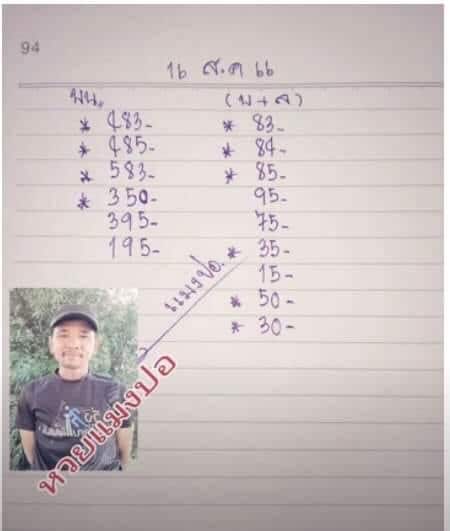 94
16 ส.ค 66
บน. (บ+ล)
* 483- * 83-
* 485- * 84-
* 583- * 85-
* 350- 95-
395- 75-
195- * 35-
15-
* 50-
* 30-
แมงปอ.
หวยแมงปอ